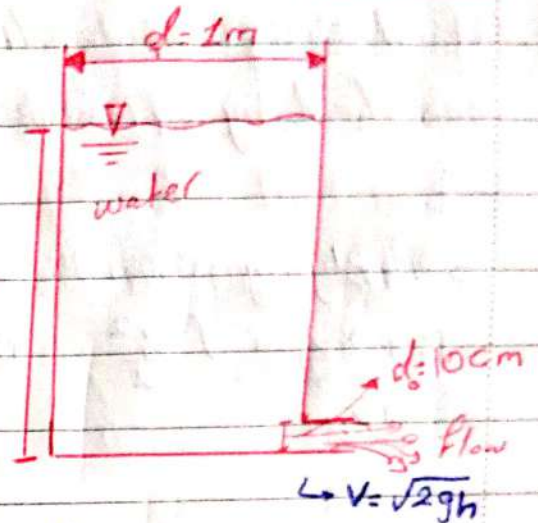 d=1m
water
d₀=10cm
flow
↳ V=√2gh